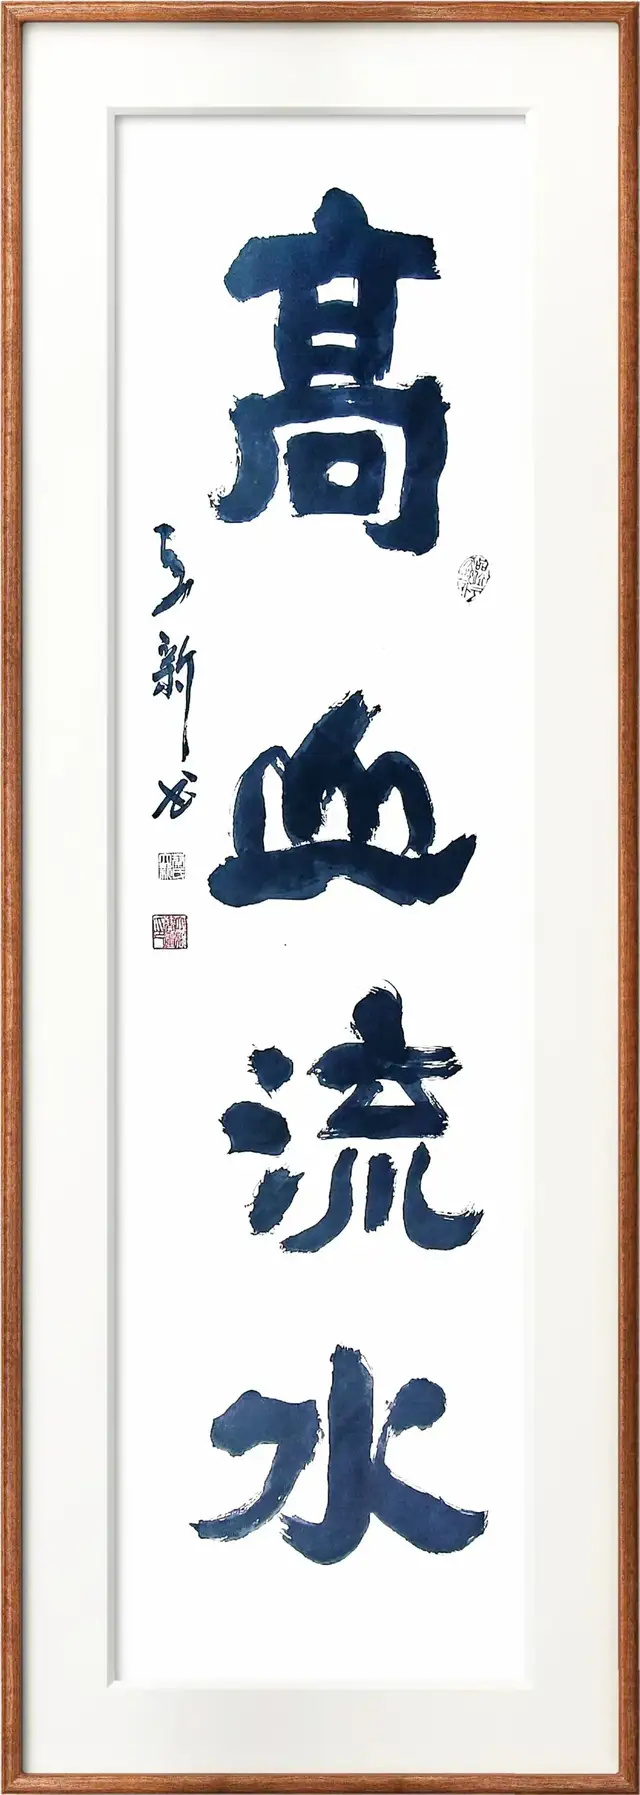 髙山流水
新书